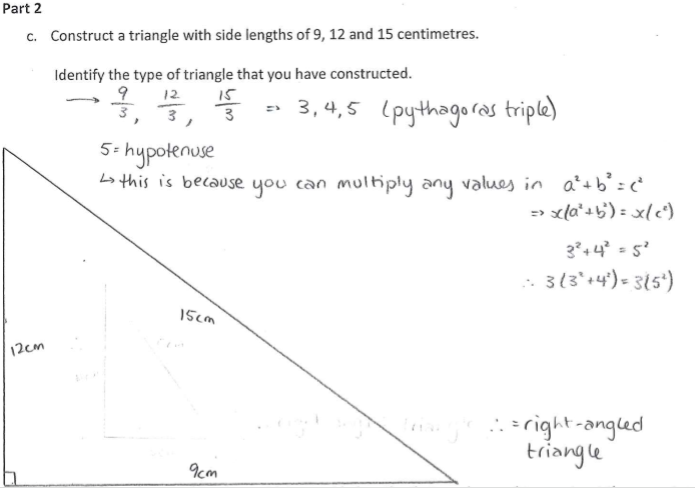 Part 2
c. Construct a triangle with side lengths of 9, 12 and 15 centimetres.
Identify the type of triangle that you have constructed.
→ 9/3, 12/3, 15/3 => 3, 4, 5 (pythagoras triple)
5 = hypotenuse
↳ this is because you can multiply any values in a²+b²=c²
=> x(a²+b²) = x(c²)
3²+4² = 5²
∴ 3(3²+4²) = 3(5²)
15cm
12cm
∴ = right-angled
triangle
9cm